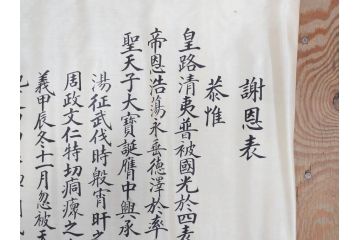 謝恩表
恭惟
皇路清夷普被國光於四表
帝恩浩蕩永垂德澤於率
聖天子大寶誕膺中興承
湯征武伐時般宵旰之
周政文仁特切痌瘝之
義甲辰冬十一月忽被天